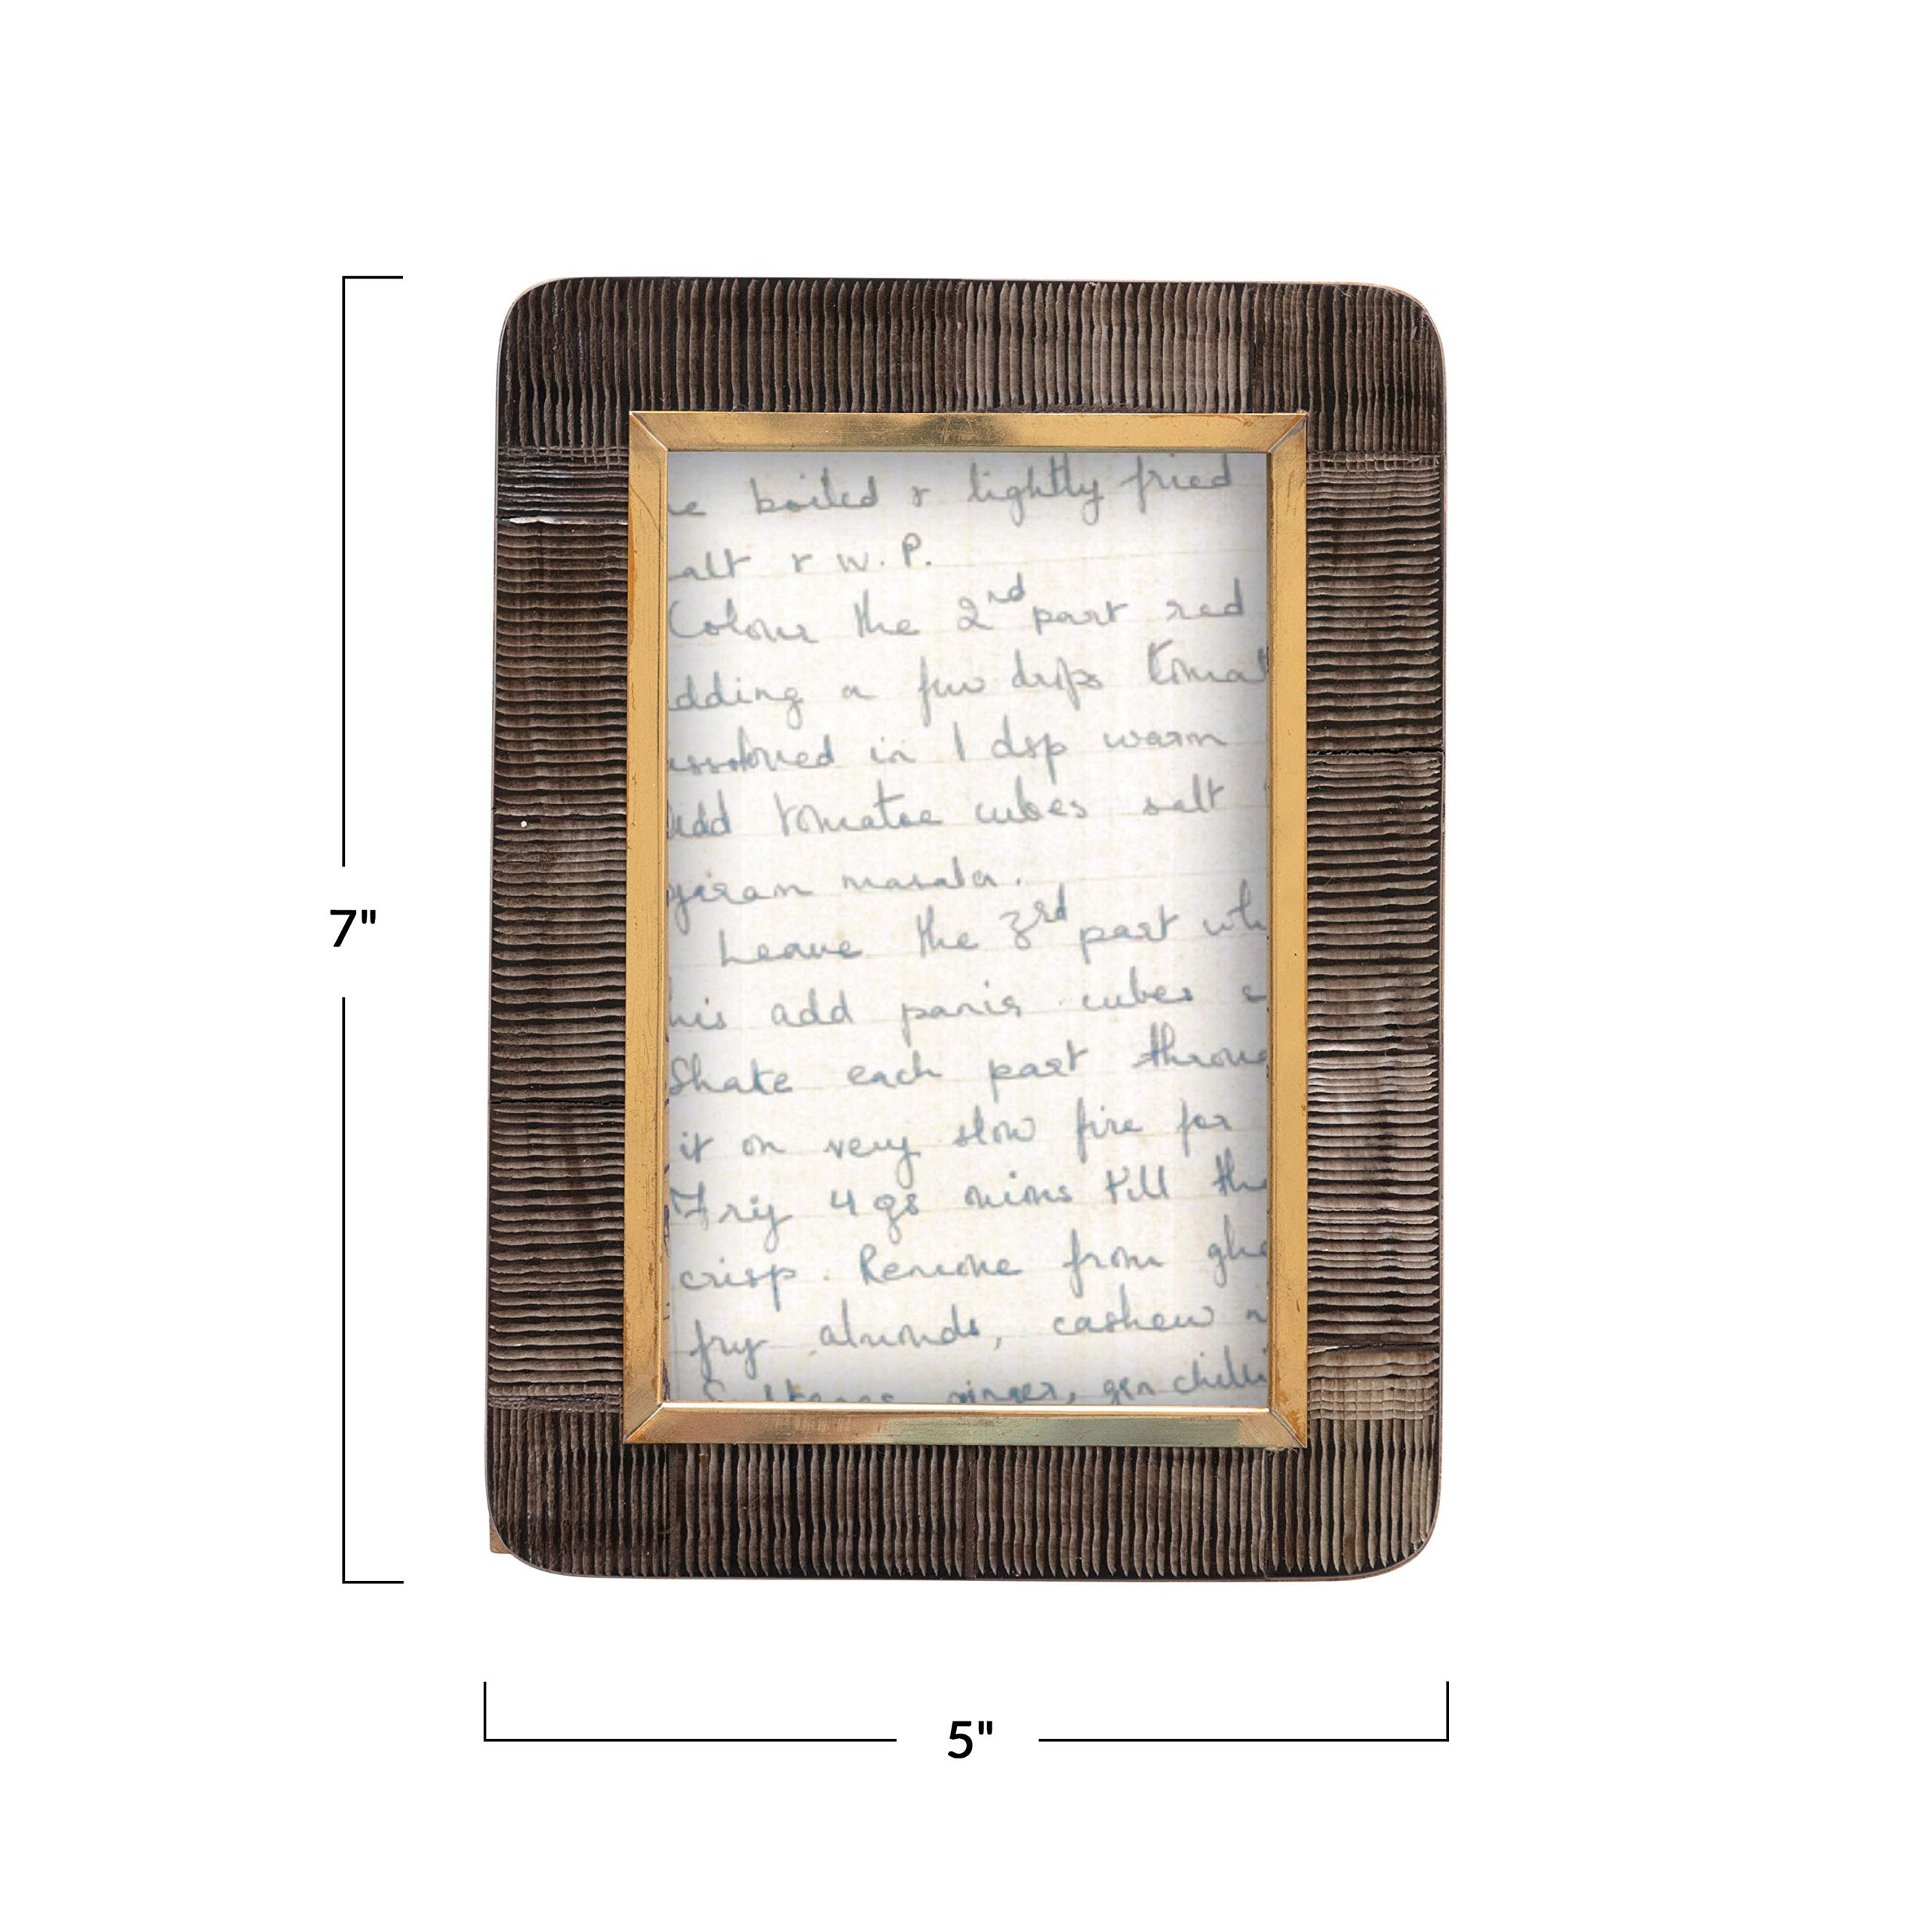 boiled & lightly fried
alt & W.P.
Colour the 2nd part red
dding a few drops tomat
ssolved in 1 dsp warm
Add tomatoe cubes salt
garam masala.
7"
Leave the 3rd part whi
his add panir cubes
Shake each part throu
it on very slow fire for
Fry 4 gs onions till the
crisp. Remove from ghe
fry almonds, cashew n
ginger, grn chilli
5"